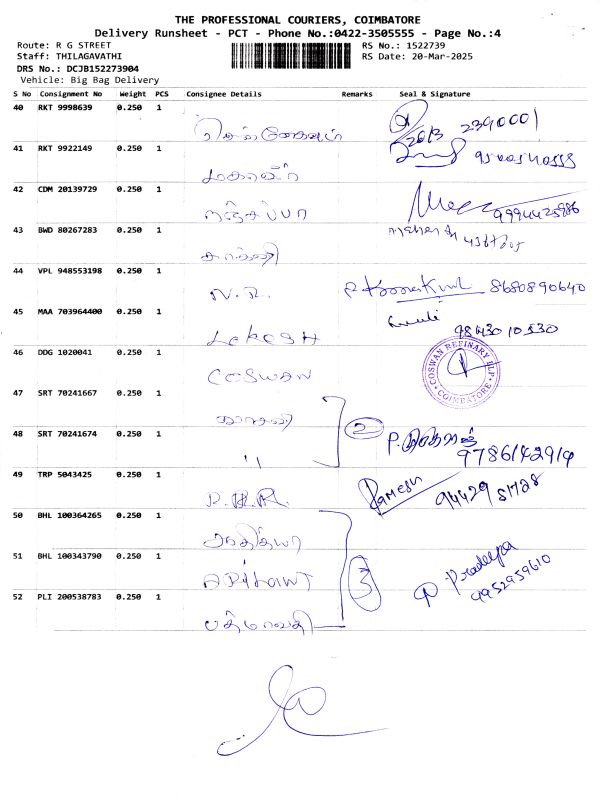 THE PROFESSIONAL COURIERS, COIMBATORE
Delivery Runsheet - PCT - Phone No.:0422-3505555 - Page No.:4
Route: R G STREET
RS No.: 1522739
Staff: THILAGAVATHI
RS Date: 20-Mar-2025
DRS No.: DCJB152273904
Vehicle: Big Bag Delivery
S No Consignment No Weight PCS Consignee Details Remarks Seal & Signature
40 RKT 9998639 0.250 1
2390001
41 RKT 9922149 0.250 1
42 CDM 20139729 0.250 1
43 BWD 80267283 0.250 1
44 VPL 948553198 0.250 1
N.R. 8680890640
45 MAA 703964400 0.250 1
Lokesh 98430 10530
46 DDG 1020041 0.250 1
COSWAN
COSWAN REFINARY LLP COIMBATORE
47 SRT 70241667 0.250 1
2
48 SRT 70241674 0.250 1
" 9786142914
49 TRP 5043425 0.250 1
Ramesh
50 BHL 100364265 0.250 1
51 BHL 100343790 0.250 1
3 Pradeepa
4952959610
52 PLI 200538783 0.250 1
பத்மாவதி